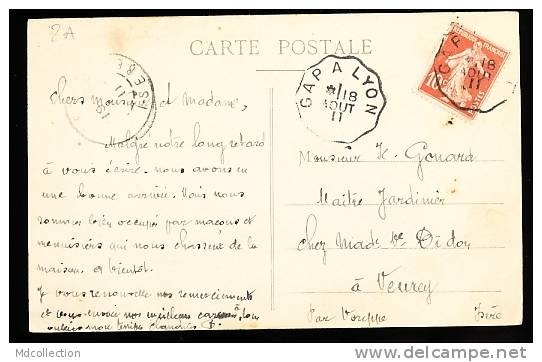 2A
CARTE POSTALE
GAP A LYON
*1 18
AOUT
11
Chers monsieur et Madame,
Malgré notre long retard
à vous écrire. nous avons eu
une bonne arrivée. Nous nous
sommes bien occupés par maçons et
menuisiers qui nous chassent de la
maison. a bientôt.
Je vous renouvelle nos remerciements
et vous envoie nos meilleurs
Monsieur K. Gonard
Maître Jardinier
Chez Made Ve Didon
à Veurey
Par Voreppe Isère
MdCollection
www.delcampe.net